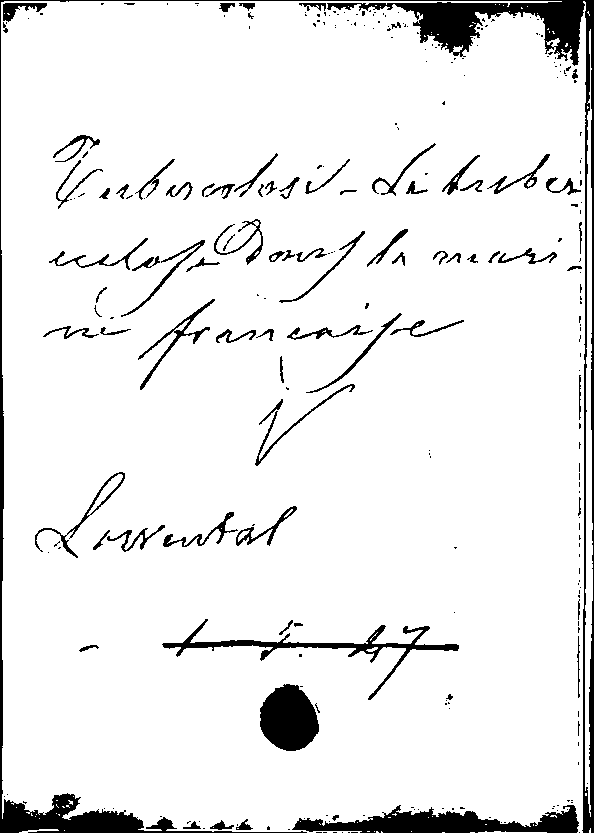 Tubercolosi - La tuber-
culose Dans la mari-
ne française
V
Lowental
- 1. 5. 47